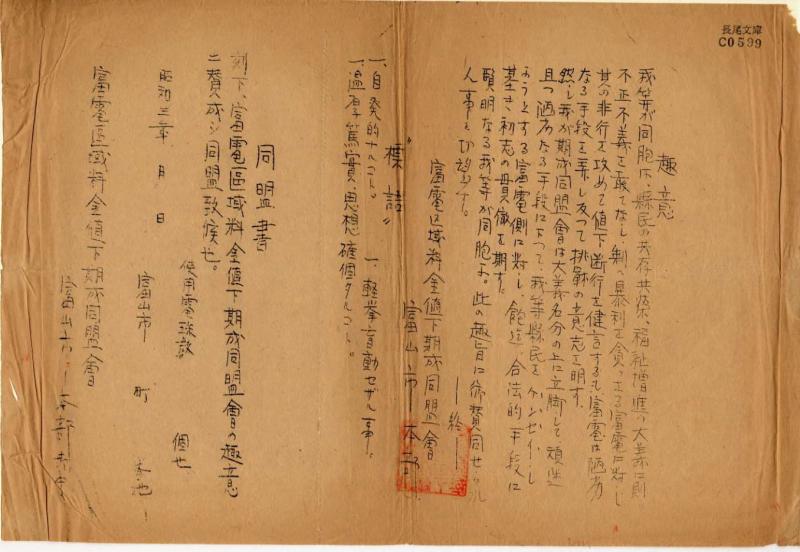 長尾文庫
C0599
趣意
我等が同胞は、縣民の共存共榮、福祉増進の大義に則
不正不義を敢てなし、剰へ暴利を貪りつゝある富電に対し
其の非行を攻めて値下断行を健言するも、富電は陋劣
なる手段を弄し反つて挑戦の意志を明す。
然し我が期成同盟會は大義名分の上に立脚して、頑迷
且つ陋劣なる手段によつて我等縣民をケンセイし
ようとする富電側に対し、飽迄合法的手段に
基き初志の貫徹を期す。
賢明なる我等が同胞よ。此の趣旨に御賛同せ
人事を切望す。
―終―
富電区域料金値下期成同盟會
富山市 本部
標語
一、自発的ナルコト。
一、軽挙盲動セザル事。
一、温厚篤實、思想穏健タルコト。
同盟書
刻下、富電區域料金値下期成同盟會の趣意
ニ賛成シ同盟致候也。
使用電球数 個也
昭和三年 月 日
富山市 町
富電區域料金値下期成同盟會
富山市 本部